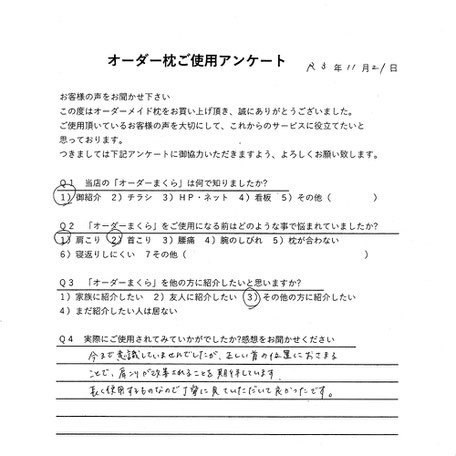 オーダー枕ご使用アンケート
R3年11月21日
お客様の声をお聞かせ下さい
この度はオーダーメイド枕をお買い上げ頂き、誠にありがとうございました。
ご使用頂いているお客様の声を大切にして、これからのサービスに役立てたいと
思っております。
つきましては下記アンケートに御協力いただきますよう、よろしくお願い致します。
Q1 当店の「オーダーまくら」は何で知りましたか?
1）御紹介 2）チラシ 3）HP・ネット 4）看板 5）その他（ ）
Q2 「オーダーまくら」をご使用になる前はどのような事で悩まれていましたか?
1）肩こり 2）首こり 3）腰痛 4）腕のしびれ 5）枕が合わない
6）寝返りしにくい 7その他（ ）
Q3 「オーダーまくら」を他の方に紹介したいと思いますか?
1）家族に紹介したい 2）友人に紹介したい 3）その他の方に紹介したい
4）まだ紹介したい人は居ない
Q4 実際にご使用されてみていかがでしたか?感想をお聞かせください
今まで意識していませんでしたが、正しい首の位置におさまる
ことで、肩こりが改善されることを期待しています。
長く使用するものなので丁寧に見ていただいて良かったです。